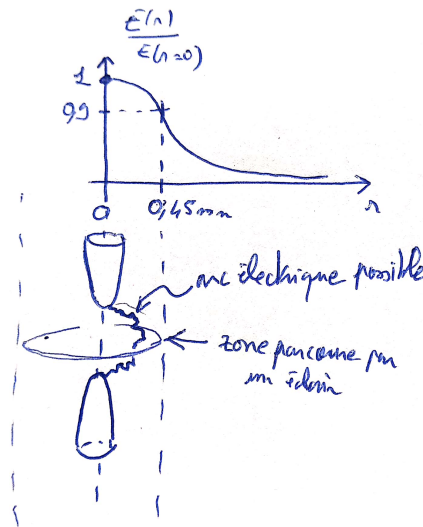 E(r)
E(r=0)
1
0,9
0
0,45mm
r
arc électrique possible
zone parcourue par
un éclair